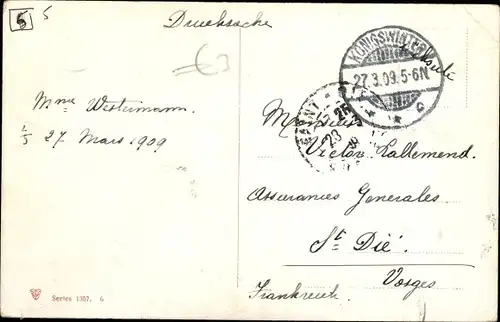 5 5
Drucksache
KÖNIGSWINTER
27.3.09.5-6N.
* * c
Mme Westermann
27 Mars 1909
Monsieur
Victor Lallemend.
Assurances Generales
St Dié.
Vosges
Frankreich.
Series 1307. 6